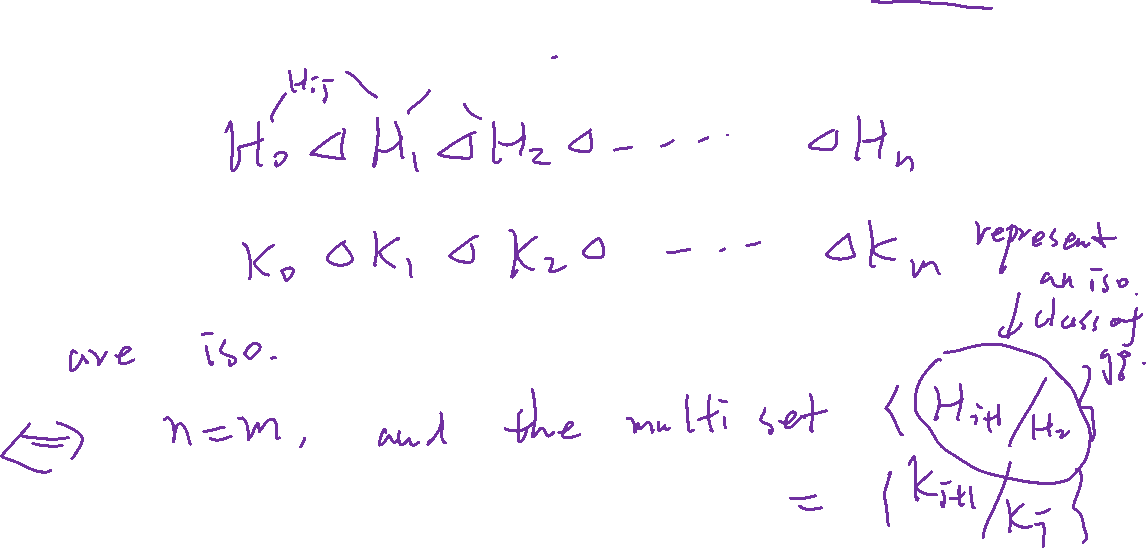 H_{ij}
H_0 ◁ H_1 ◁ H_2 ◁ - - - ... ◁ H_n
K_0 ◁ K_1 ◁ K_2 ◁ - ... - ◁ K_m
represent
an iso.
class of
gp.
are iso.
⟺ n=m, and the multi set { H_{i+1}/H_i }
= { K_{j+1}/K_j }